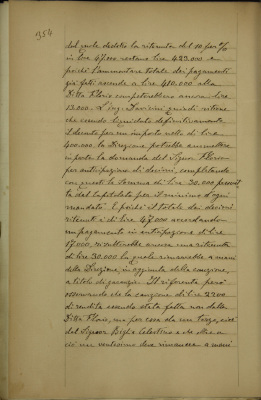 1354
dal quale dedotta la ritenuta del 10 per %
in lire 47.000 restano lire 423.000 e
poichè l'ammontare totale dei pagamenti
già fatti ascende a lire 410.000 alla
Ditta Florio competerebbero ancora lire
13.000. L'ing. quindi ritiene
che essendo liquidato definitivamente
il dovuto per un importo netto di lire
400.000 la Direzione potrebbe ammettere
in parte la domanda del Signor Florio
per anticipazione di decimi, completando
con questi la somma di lire 30.000
dal capitolato per il minimo d'ogni
mandato. E poichè il totale dei decimi
ritenuti è di lire 47.000 accordando
un pagamento in anticipazione di lire
17.000, risulterebbe ancora una ritenuta
di lire 30.000 la quale rimarrebbe a mani
della Direzione, in aggiunta della cauzione,
a titolo di garanzia. Il riferente però
osservando che la cauzione di lire 2200
di rendita essendo stata fatta non dalla
Ditta Florio, ma per essa da un terzo, cioè
dal Signor Biglia Celestino e che oltre a
ciò un ventesimo deve rimanere a mani